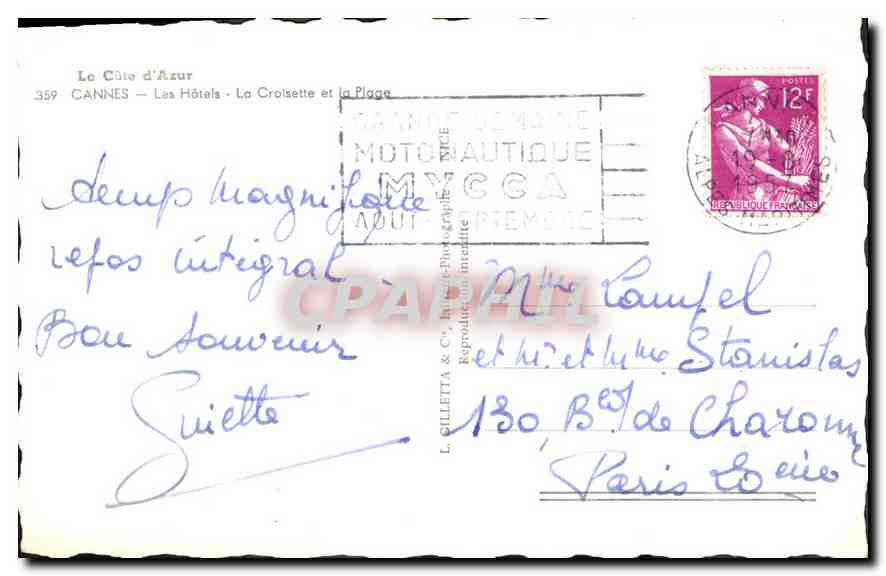 La Côte d'Azur
359 CANNES — Les Hôtels - La Croisette et la Plage
GRANDE SEMAINE
MOTONAUTIQUE
MYCCA
AOUT-SEPTEMBRE
POSTES
12F
REPUBLIQUE FRANÇAISE
19-8
ALPES MARITIMES
Temp magnifique
repos intégral -
Bon souvenir
Ginette
L. GILLETTA & Cie, Imprim-Photographe NICE
Reproduction interdite
CPAPHIL
Mme Lampel
et Mr et Mme Stanislas
130, Bd de Charonne
Paris 20eme